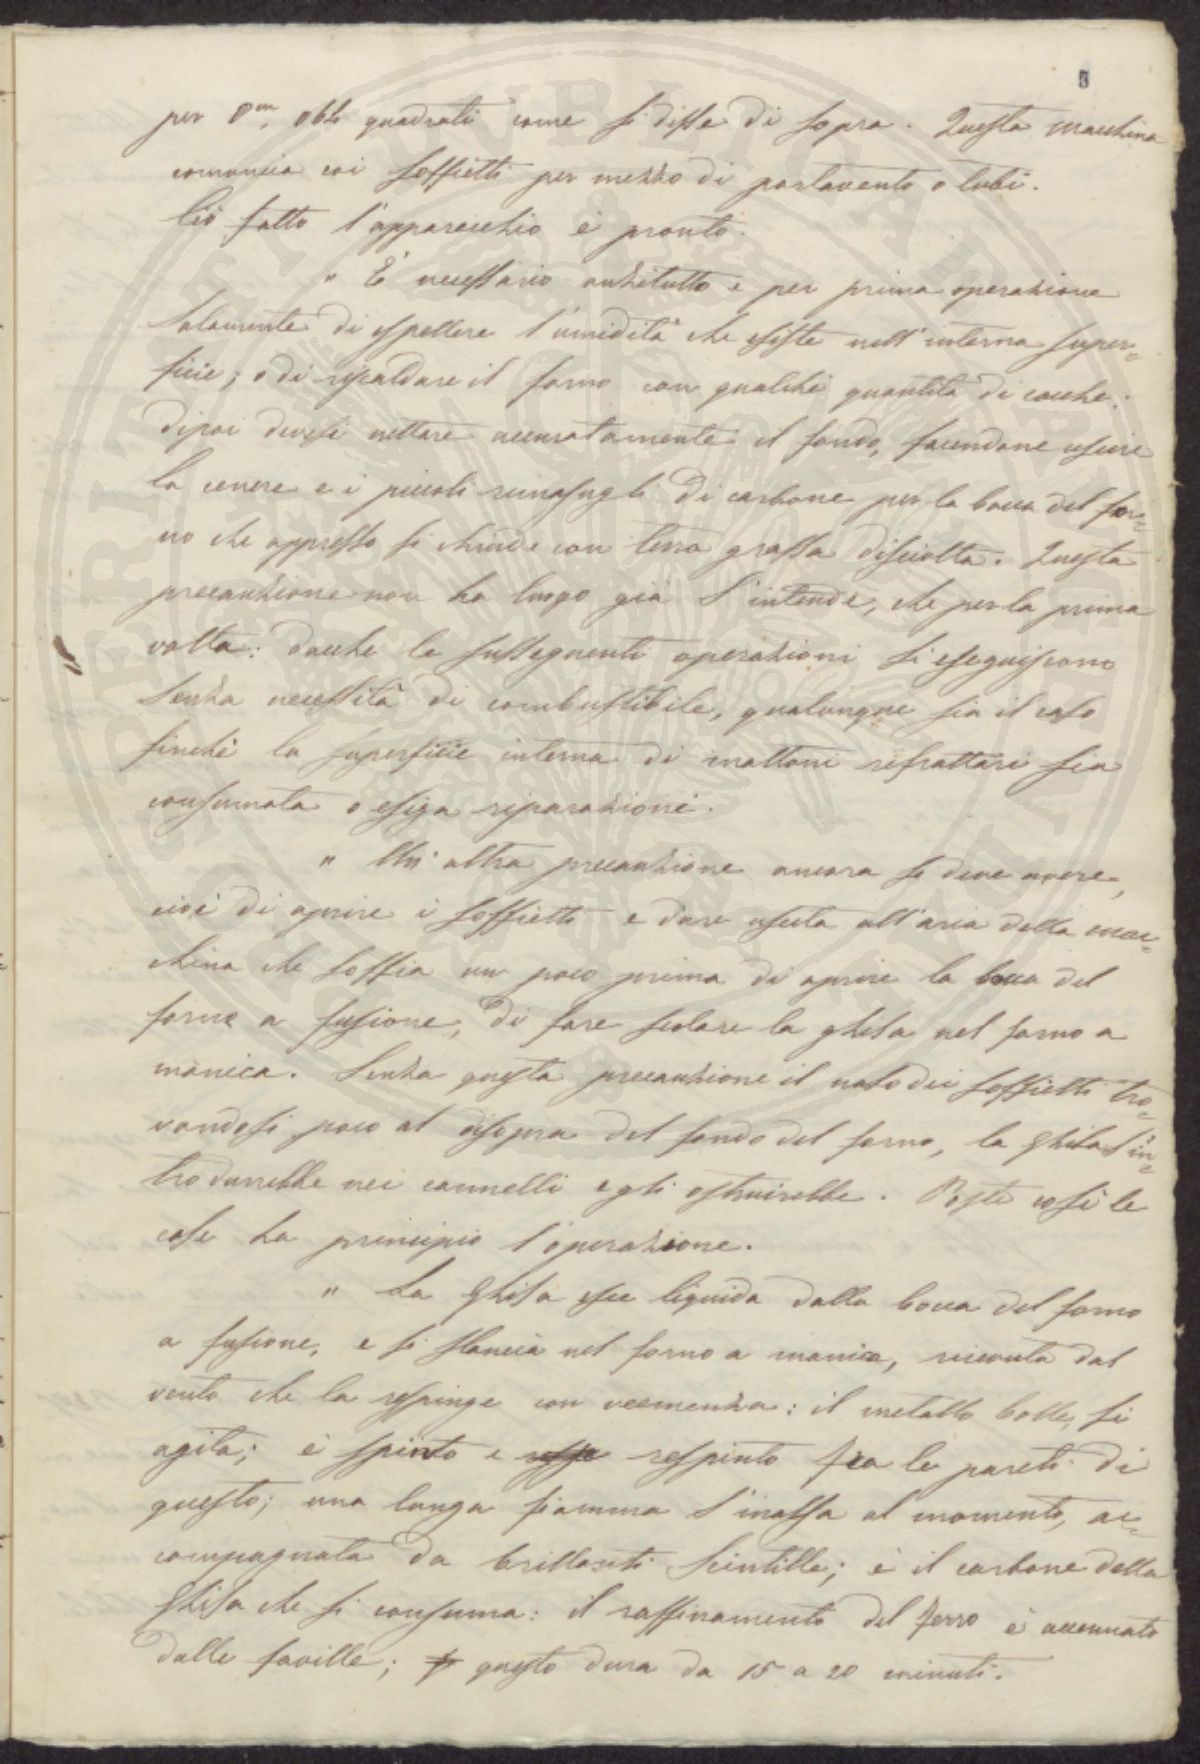 8
per 0m, 066 quadrati come si disse di sopra. Questa macchina
comunica coi soffietti per mezzo di portavento o tubi.
Ciò fatto l'apparecchio è pronto.
" E' necessario anzitutto e per prima operazione
solamente di espellere l'umidità che esiste nell'interna super=
ficie; e di riscaldare il forno con qualche quantità di cocche:
dipoi devesi nettare accuratamente il fondo, facendone uscire
la cenere e i piccoli rimasugli di carbone per la bocca del for=
no che appresso si chiude con terra grassa disciolta. Questa
precauzione non ha luogo già s'intende, che per la prima
volta: dacchè le susseguenti operazioni si eseguiscono
senza necessità di combustibile, qualunque sia il caso
finchè la superficie interna di mattoni refrattari sia
consumata o esiga riparazione.
" Un'altra precauzione ancora si deve avere,
cioè di aprire i soffietti e dare uscita all'aria della mac=
china che soffia un poco prima di aprire la bocca del
forno a fusione, di fare scolare la ghisa nel forno a
manica. Senza questa precauzione il naso dei soffietti tro=
vandosi poco al disopra del fondo del forno, la ghisa s'in=
trodurrebbe nei cannelli e gli ostruirebbe. Poste così le
cose ha principio l'operazione.
" La ghisa esce liquida dalla bocca del forno
a fusione, e si slancia nel forno a manica, ricevuta dal
vento che la respinge con veemenza: il metallo bolle, si
agita; è spinto e respinto fra le pareti di
questo; una lunga fiamma s'inalza al momento, ac=
compagnata da brillanti scintille; è il carbone della
ghisa che si consuma: il raffinamento del ferro è accennato
dalle faville; questo dura da 15 a 20 minuti.